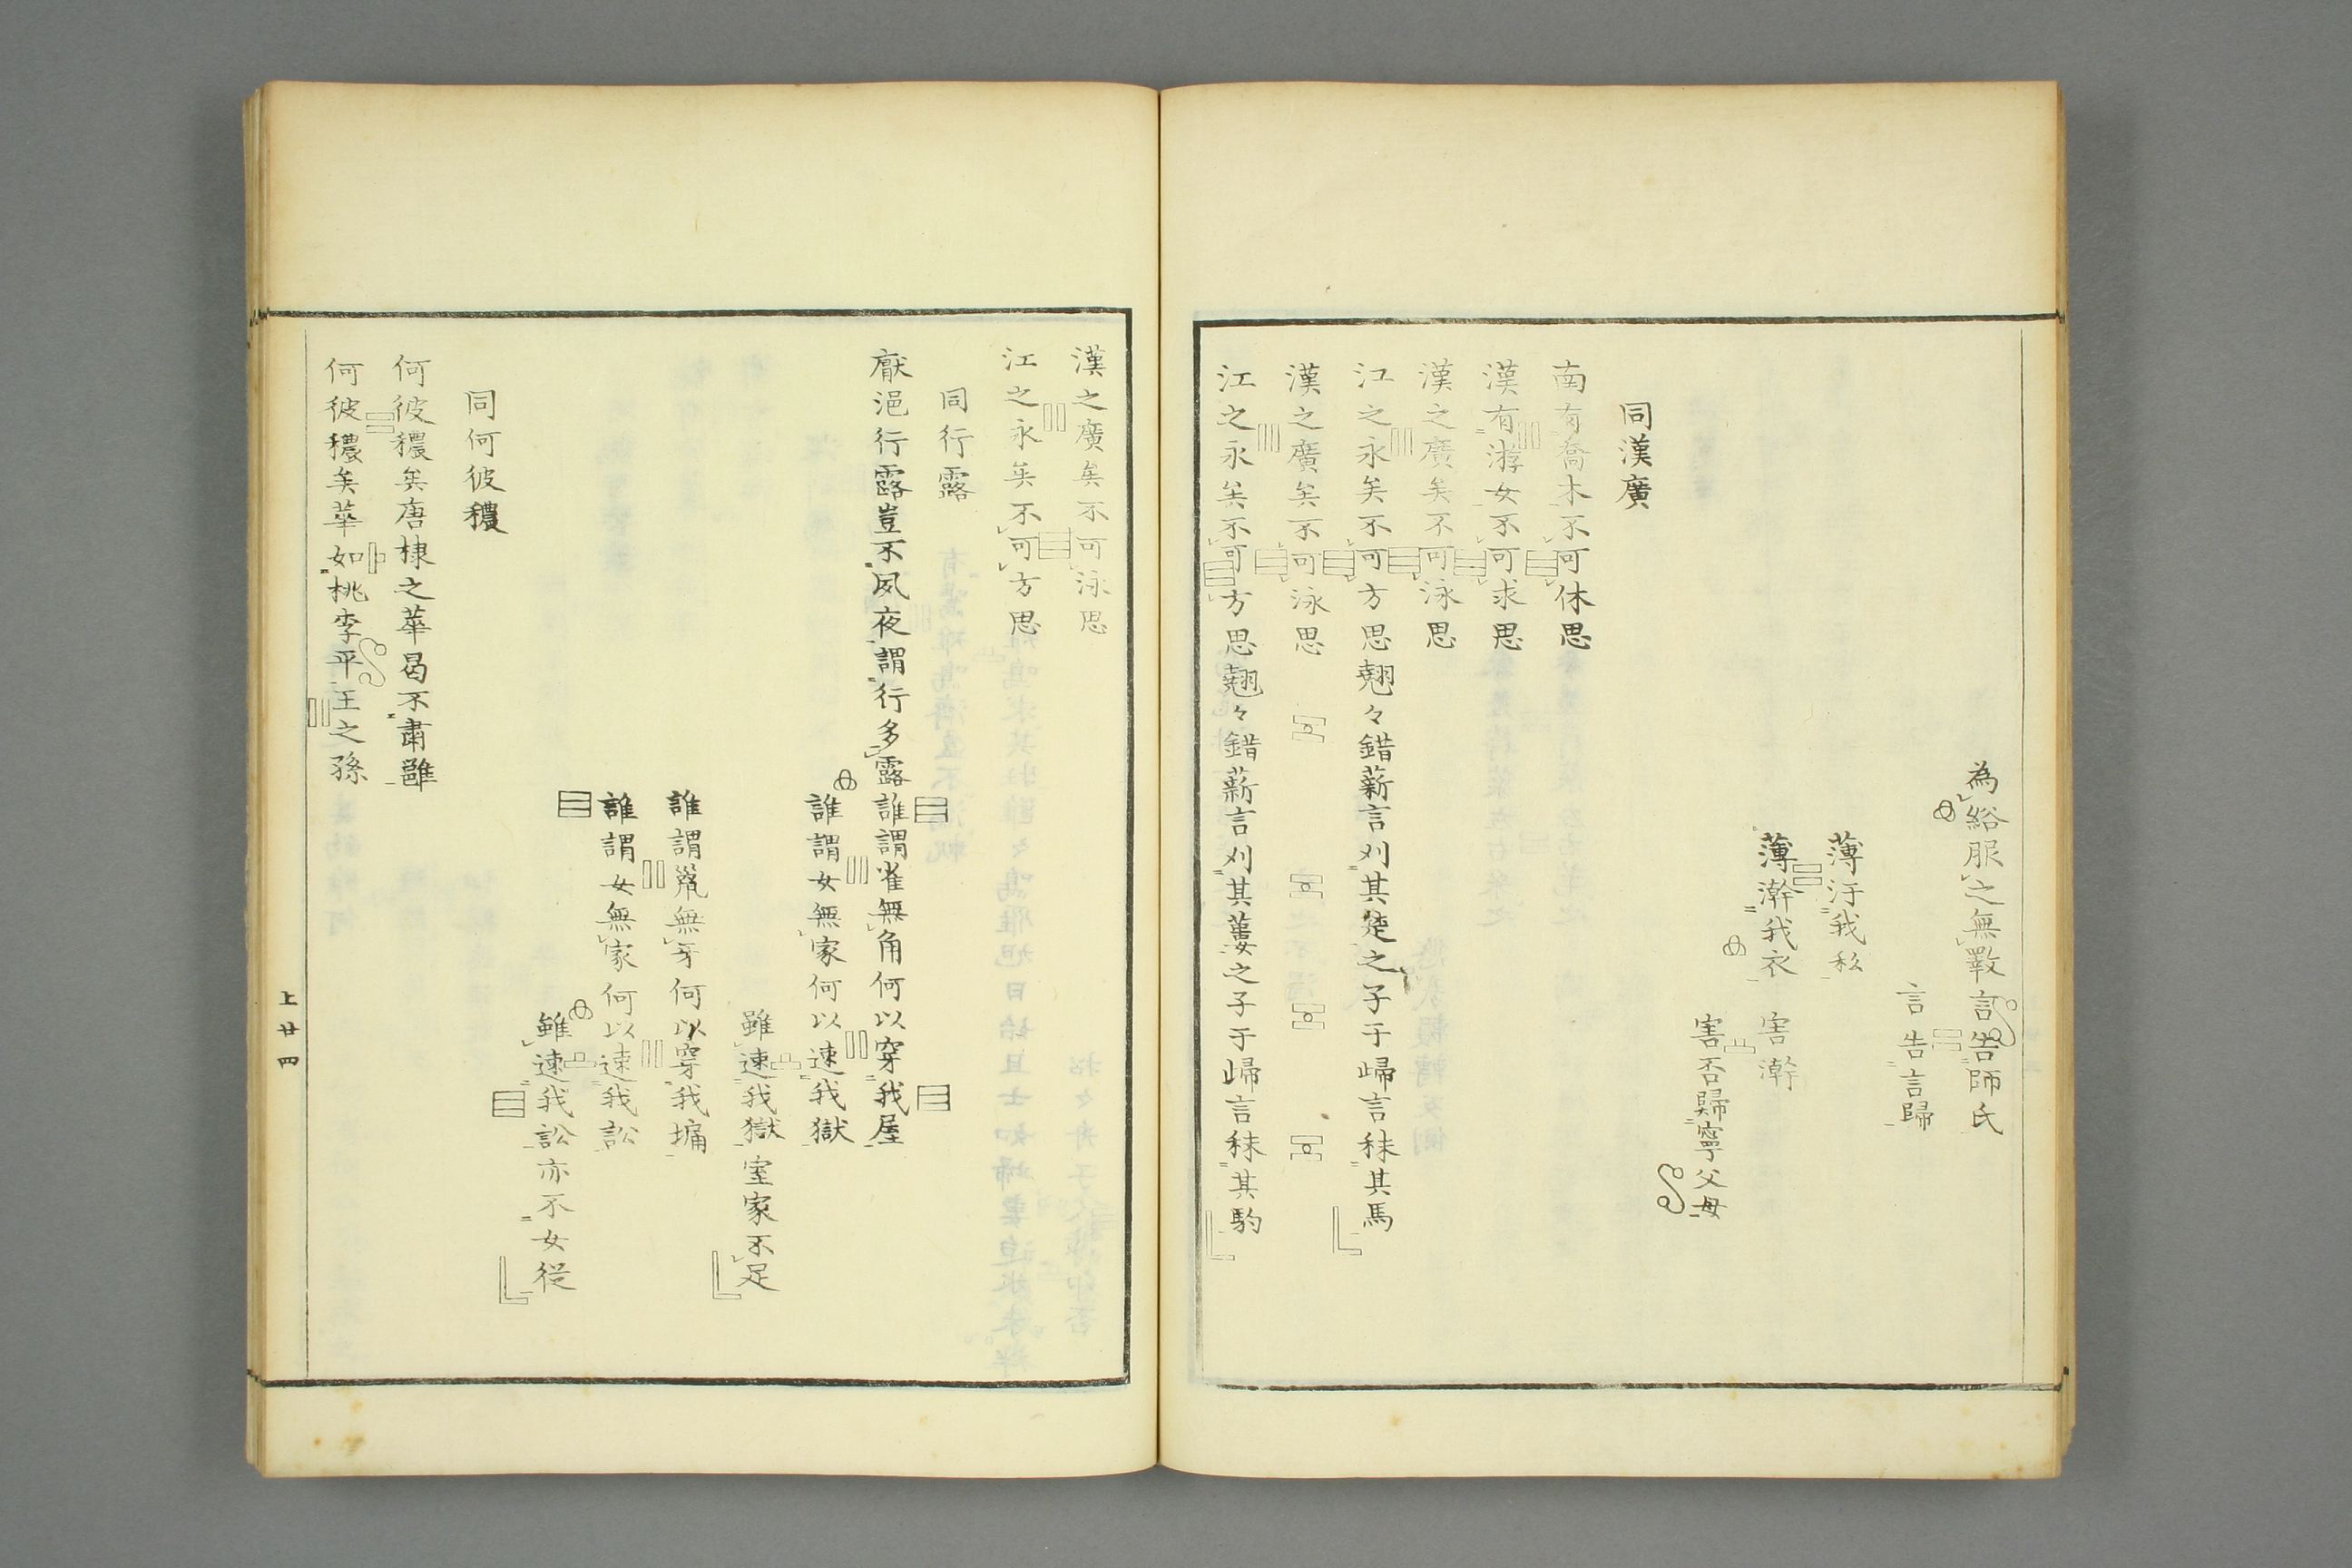 為綌服之無斁言告師氏
言告言歸
薄汙我私
薄澣我衣 害澣
害否歸寧父母
同漢廣
南有喬木不可休思
漢有游女不可求思
漢之廣矣不可泳思
江之永矣不可方思翹々錯薪言刈其楚之子于歸言秣其馬
漢之廣矣不可泳思
江之永矣不可方思翹々錯薪言刈其蔞之子于歸言秣其駒
漢之廣矣不可泳思
江之永矣不可方思
同行露
厭浥行露豈不夙夜謂行多露誰謂雀無角何以穿我屋
誰謂女無家何以速我獄
雖速我獄室家不足
誰謂鼠無牙何以穿我墉
誰謂女無家何以速我訟
雖速我訟亦不女從
同何彼穠
何彼穠矣唐棣之華曷不肅雝
何彼穠矣華如桃李平王之孫
上廿四